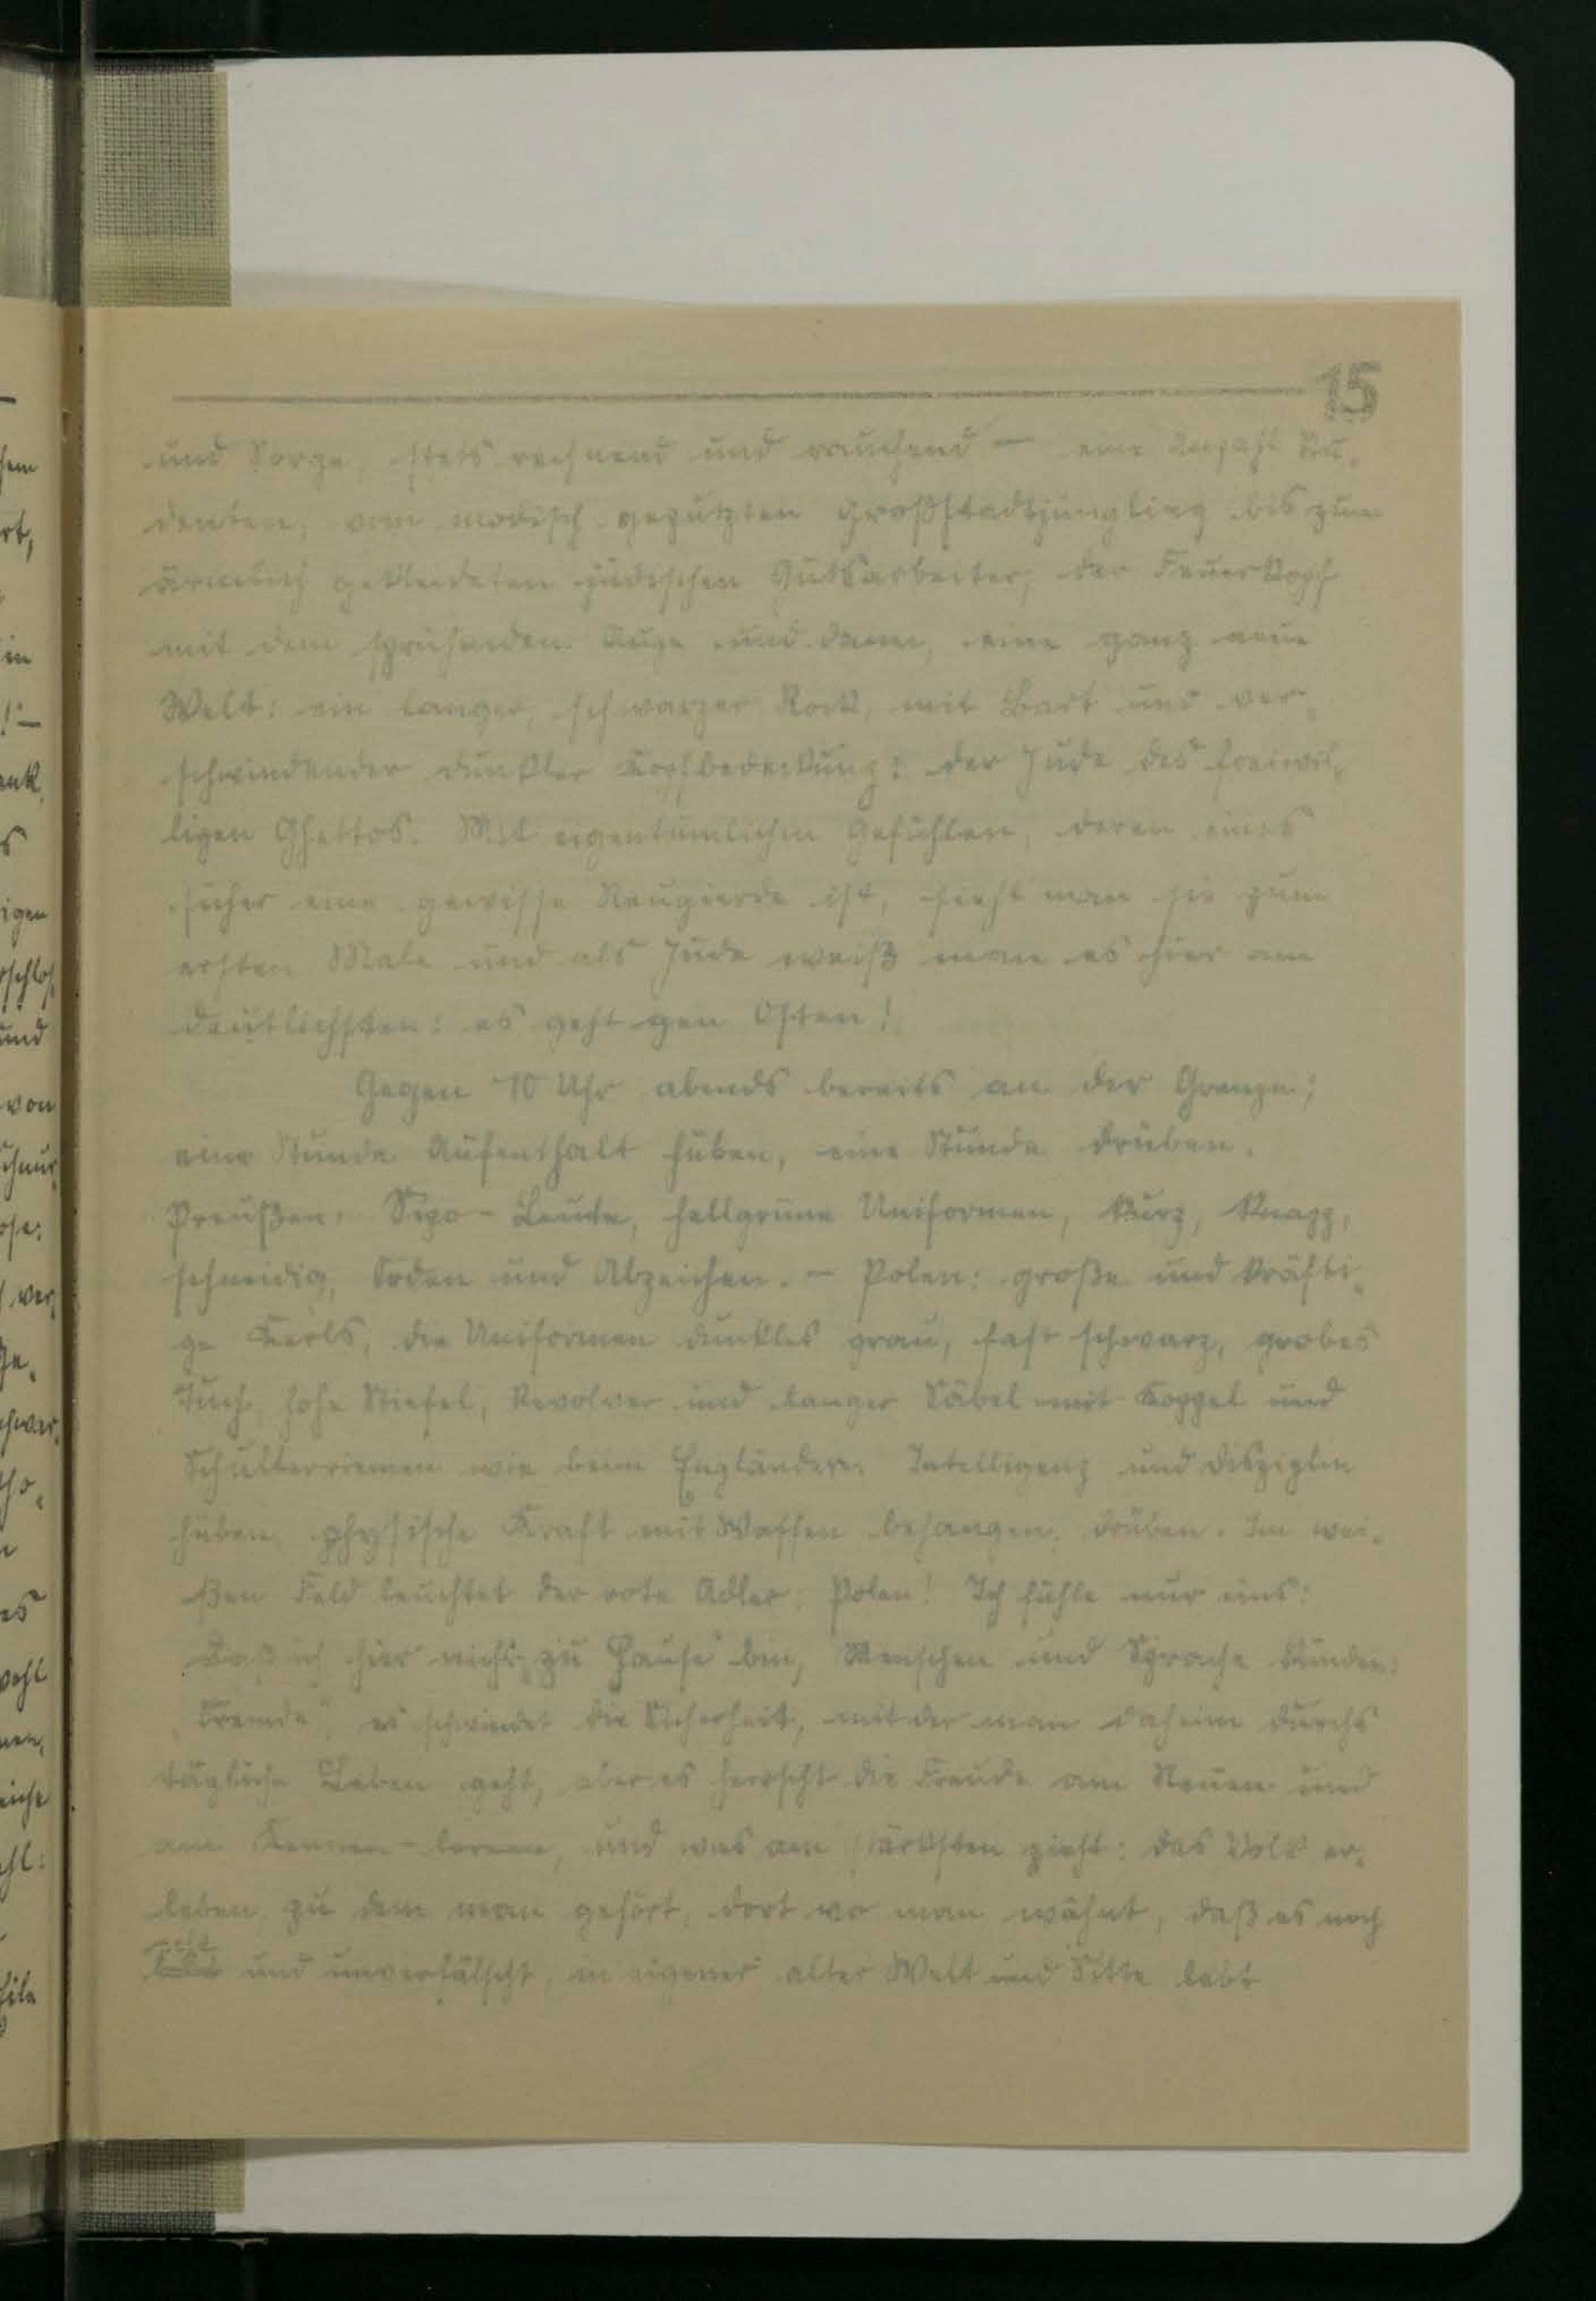 15
und Sorge, stets rechnend und rauchend — eine Anzahl Stu-
denten, vom modisch geputzten Großstadtjüngling bis zum
ärmlich gekleideten jüdischen Gutsarbeiter, der Feuerkopf
mit dem sprühenden Auge und dann, eine ganz neue
Welt: ein langer, schwarzer Rock, mit Bart und ver-
schwindender dunkler Kopfbedeckung: der Jude des freiwil-
ligen Ghettos. Mit eigentümlichen Gefühlen, deren eines
sicher eine gewisse Neugierde ist, sieht man sie zum
ersten Male und als Jude weiß man es hier am
deutlichsten: es geht gen Osten!
Gegen 10 Uhr abends bereits an der Grenze;
eine Stunde Aufenthalt hüben, eine Stunde drüben.
Preußen: Sipo-Leute, hellgrüne Uniformen, kurz, knapp,
schneidig, Orden und Abzeichen. - Polen: große und kräfti-
ge Kerls, die Uniformen dunkles grau, fast schwarz, grobes
Tuch, hohe Stiefel, Revolver und langer Säbel mit Koppel und
Schulterriemen wie beim Engländer. Intelligenz und Disziplin
hüben, physische Kraft mit Waffen behangen, drüben. Im wei-
ßen Feld leuchtet der rote Adler: Polen! Ich fühle nur eins:
Daß ich hier nicht zu Hause bin, Menschen und Sprache künden:
„Fremde", es schwindet die Sicherheit, mit der man daheim durchs
tägliche Leben geht, aber es herrscht die Freude am Neuen und
am Kennen-lernen, und was am stärksten zieht: das Volk er-
leben, zu dem man gehört, dort wo man wähnt, daß es noch
und unverfälscht, in eigener alter Welt und Sitte lebt
hem
rt,
in
!-
ank
s
igen
schlos
und
von
ver
es
wohl